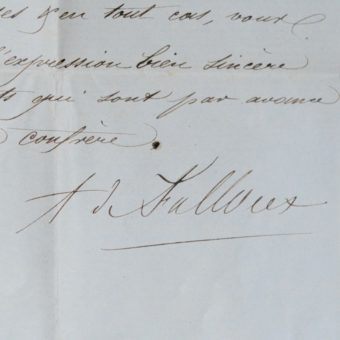 es & en tout cas, vous
l'expression bien sincère
ts qui sont par avance
confrère.
A de Falloux